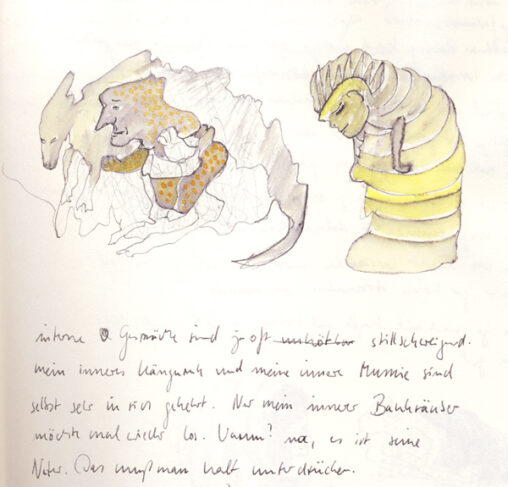 interne Gespräche sind ja oft unhörbar stillschweigend.
mein inneres Känguruh und meine innere Mumie sind
selbst sehr in sich gekehrt. Nur mein innerer Bankräuber
möchte mal wieder los. Warum? na, es ist seine
Natur. Das muß man halt unterdrücken.